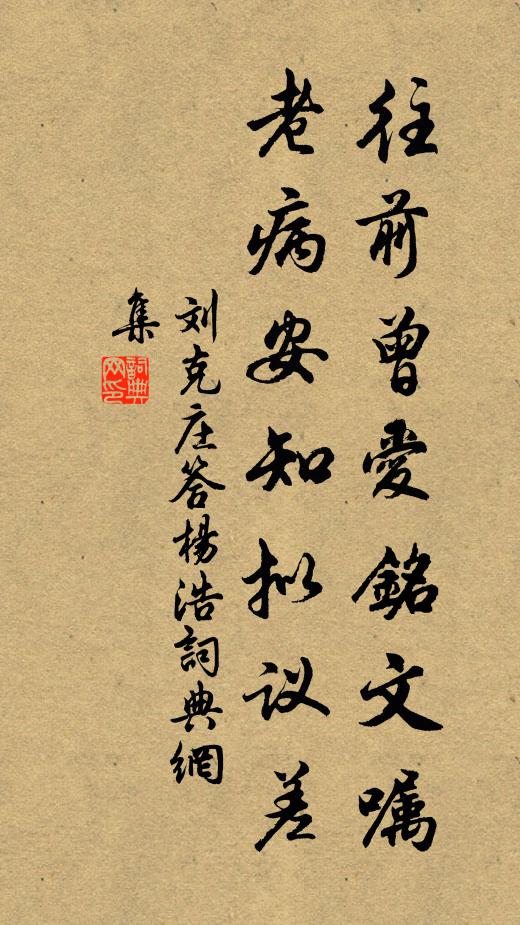 往前曾愛銘文嘱
老病安知拟议差
刘克庄答楊浩詞典網
集
詞典网印